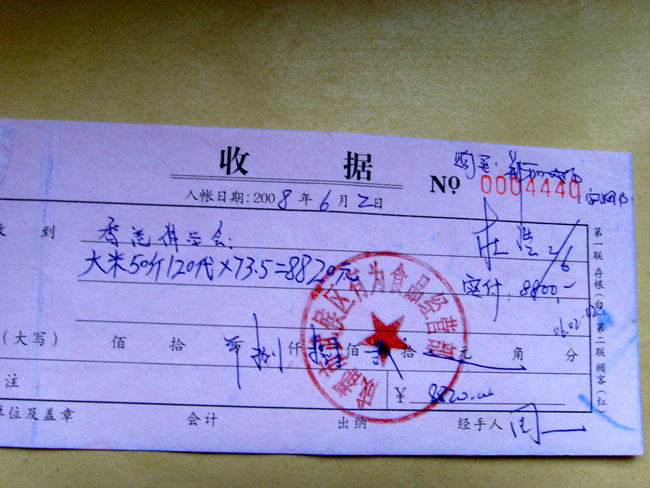 收 据
购米:
No 0004440
入帐日期:2008年6月2日
收到 香港科学会: 杜 2/6
大米50斤120代×73.5=8820元 实付:8800,-
06.02.02
(大写) 佰 拾 捌仟捌佰贰拾 元 角 分
¥ 8820.00
注
单位及盖章 会计 出纳 经手人 周一
第一联存根(白) 第二联顾客(红)
成都市武侯区有为食品经营部